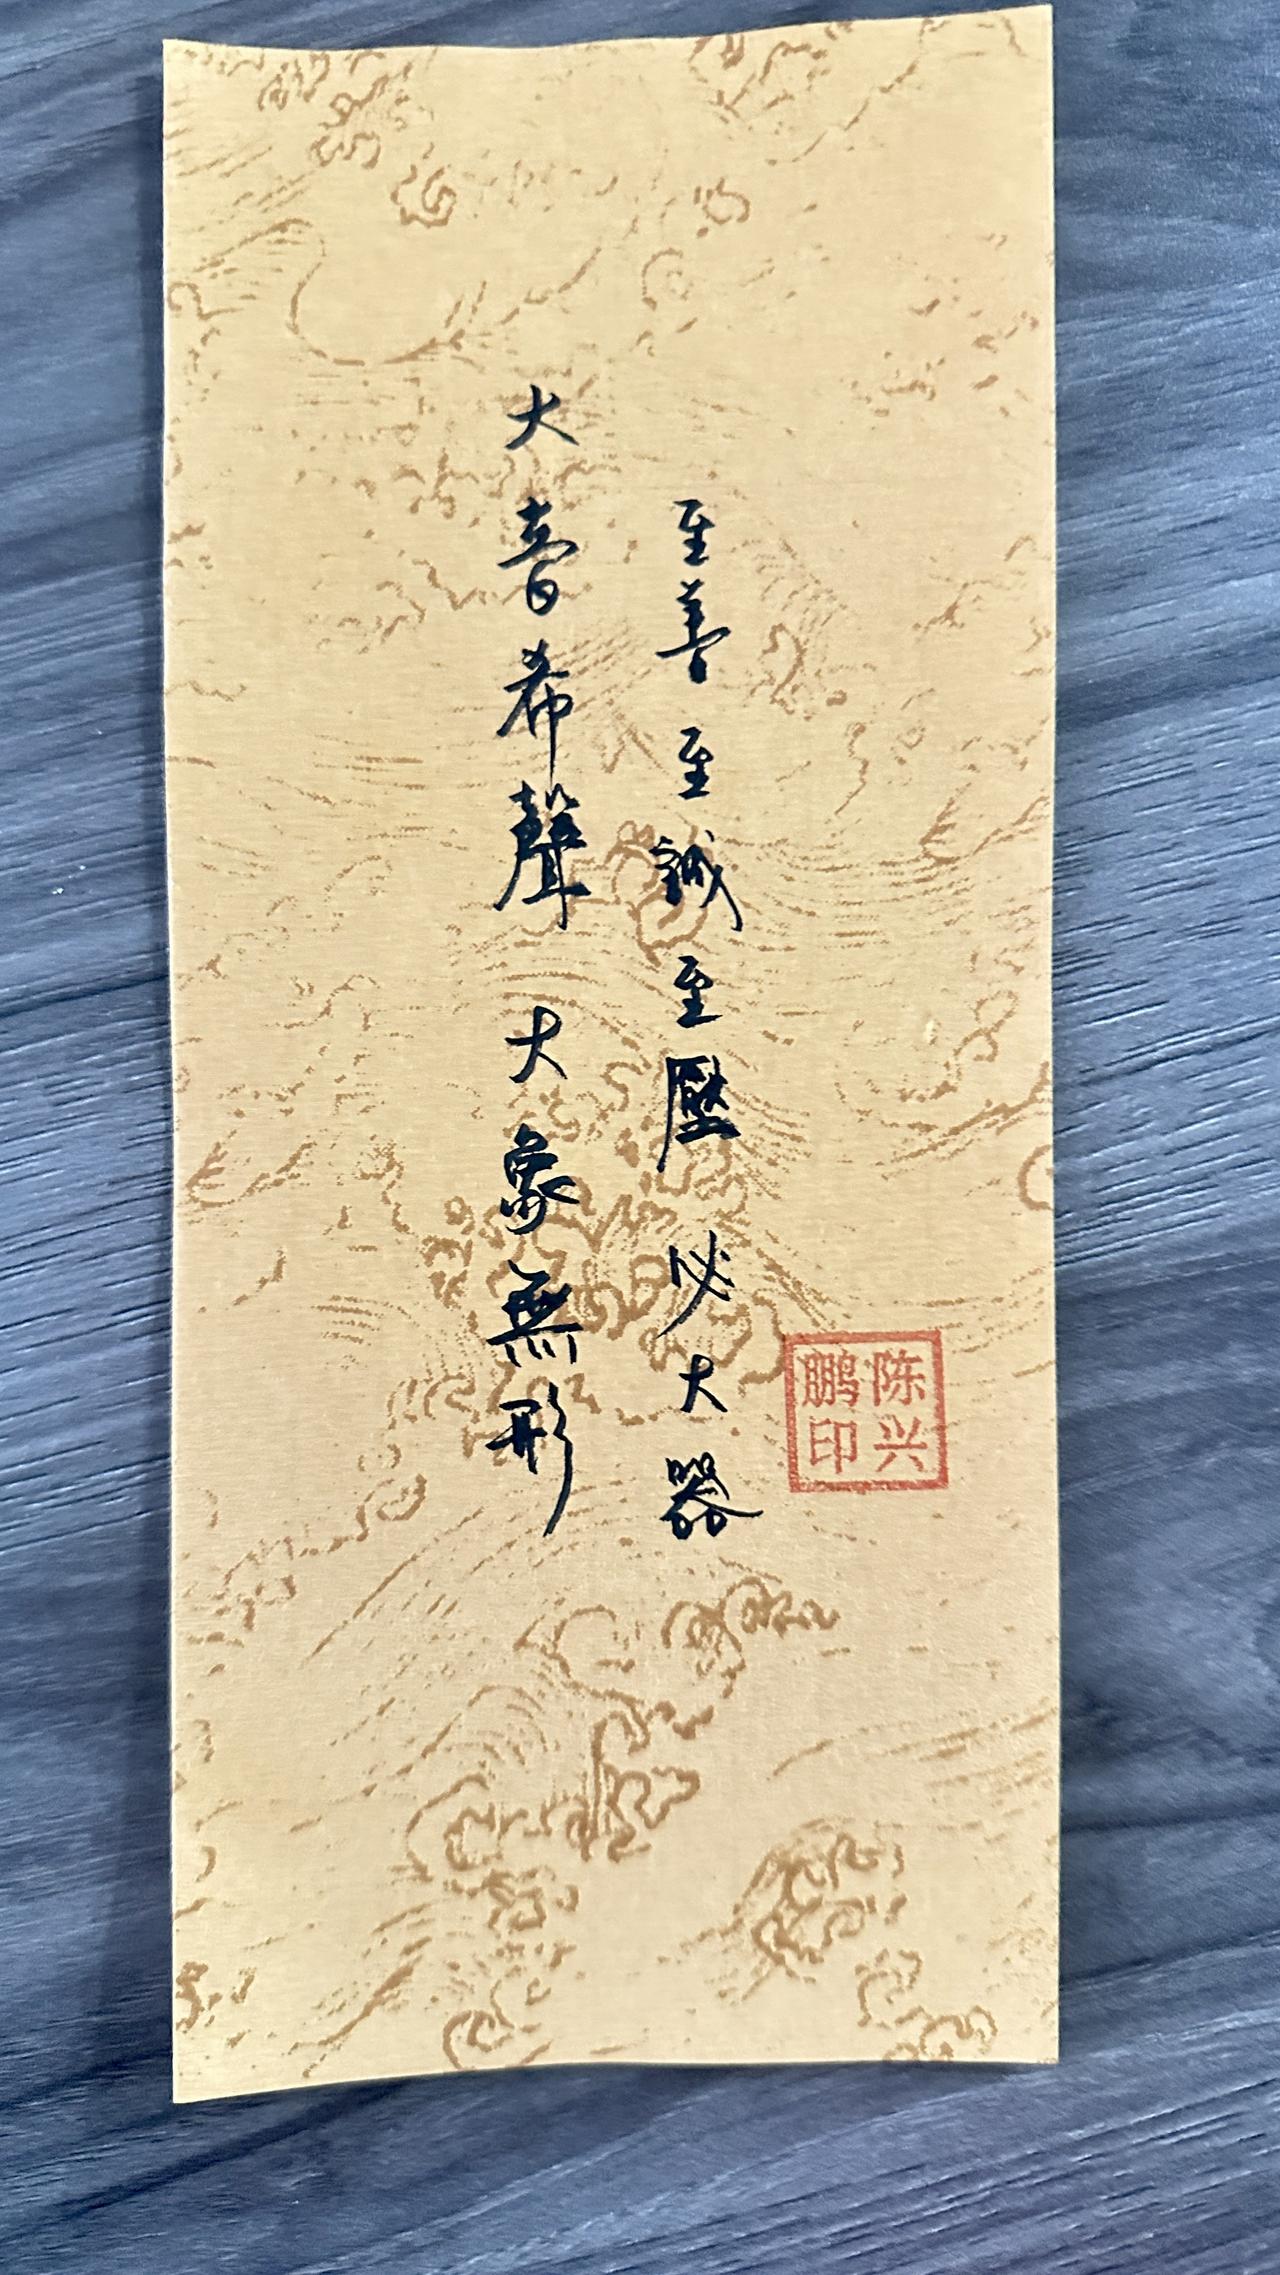 至善至誠至壓必大器
大音希聲大象無形
陈兴鹏印